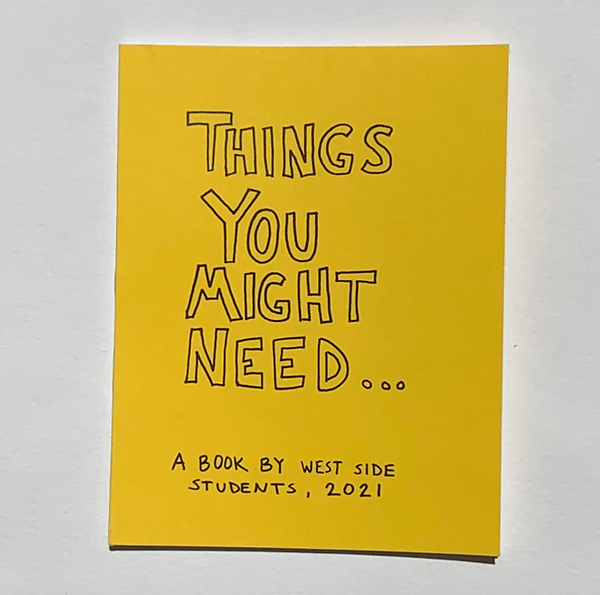 THINGS
YOU
MIGHT
NEED...
A BOOK BY WEST SIDE
STUDENTS, 2021